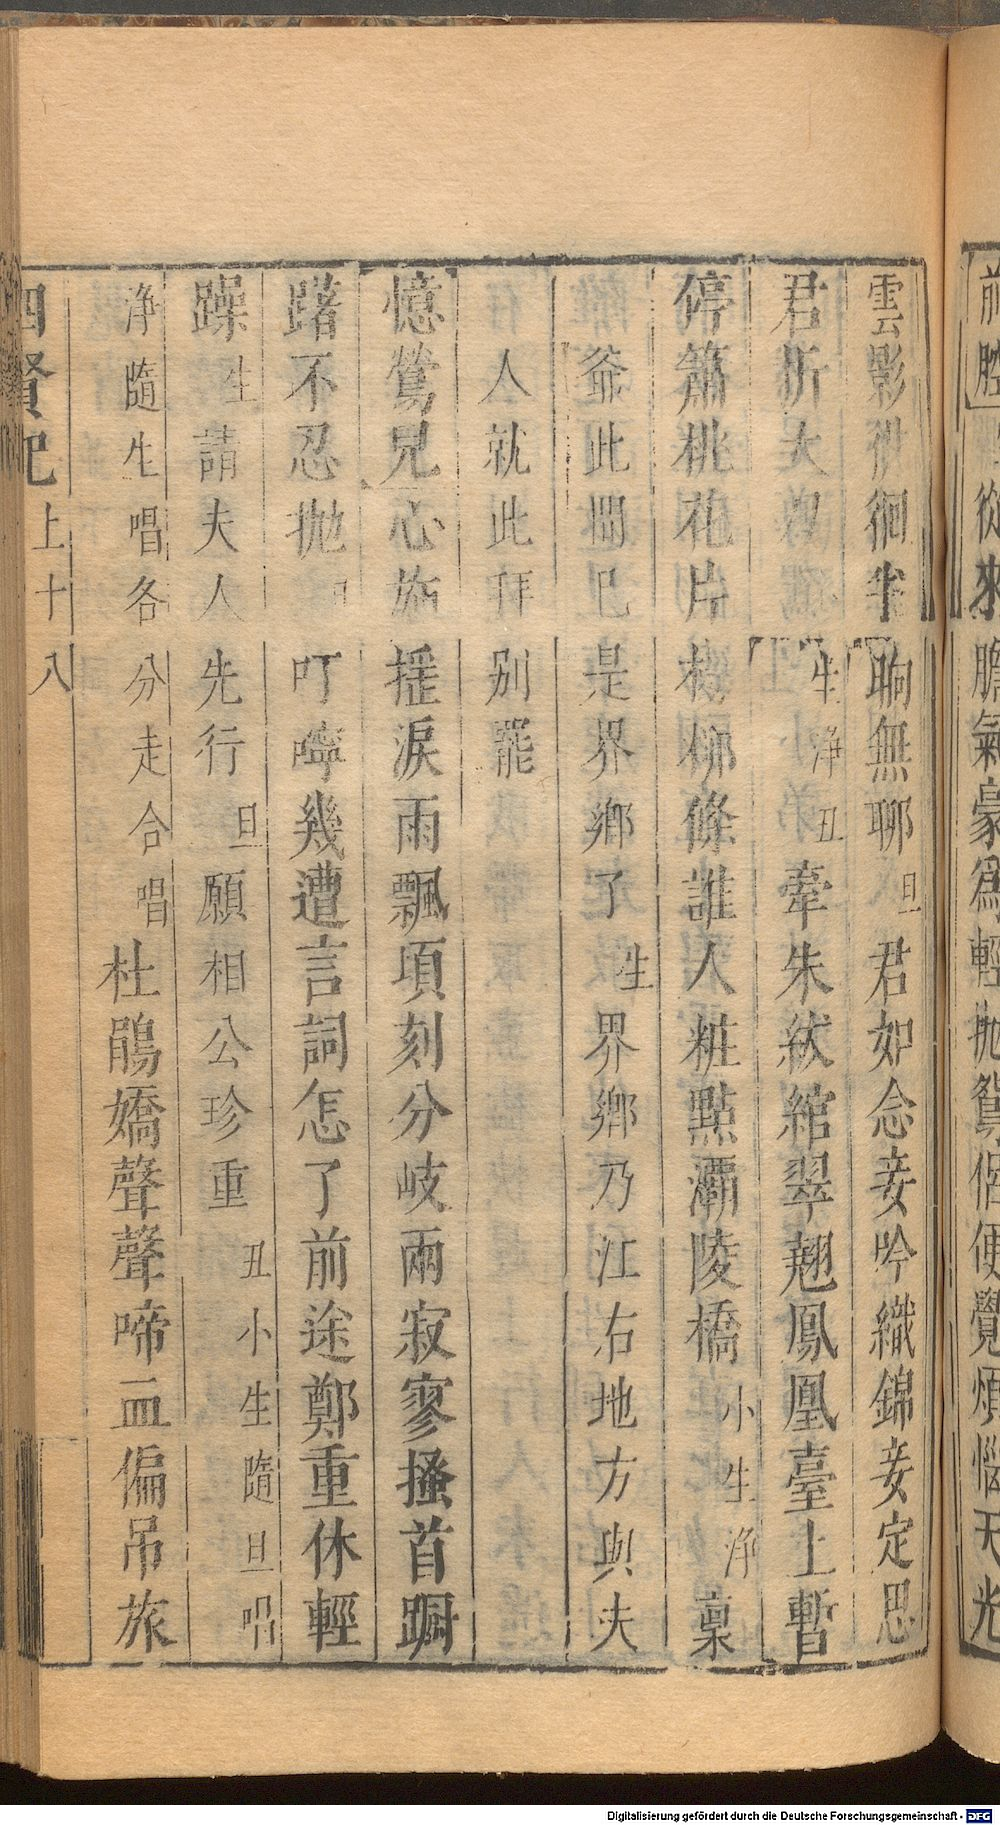 前腔從來膽氣豪爲輕抛鴛侶便覺煩惱天光
雲影徘徊半晌無聊旦君如念妾吟織錦妾定思
君折大刀生淨丑牽朱紱綰翠翹鳳凰臺上暫
停簫桃花片楊柳條誰人粧點灞陵橋小生淨稟
爺此間已是界鄉了生界鄉乃江右地方與夫
人就此拜別罷
憶鶯兒心旆搖淚雨飄頃刻分岐兩寂寥搔首踟
躇不忍抛旦叮嚀幾遭言詞怎了前途鄭重休輕
躁生請夫人先行旦願相公珍重丑小生隨旦唱
淨隨生唱各分走合唱杜鵑嬌聲聲啼血偏吊旅
四賢記上十八
Digitalisierung gefördert durch die Deutsche Forschungsgemeinschaft - DFG